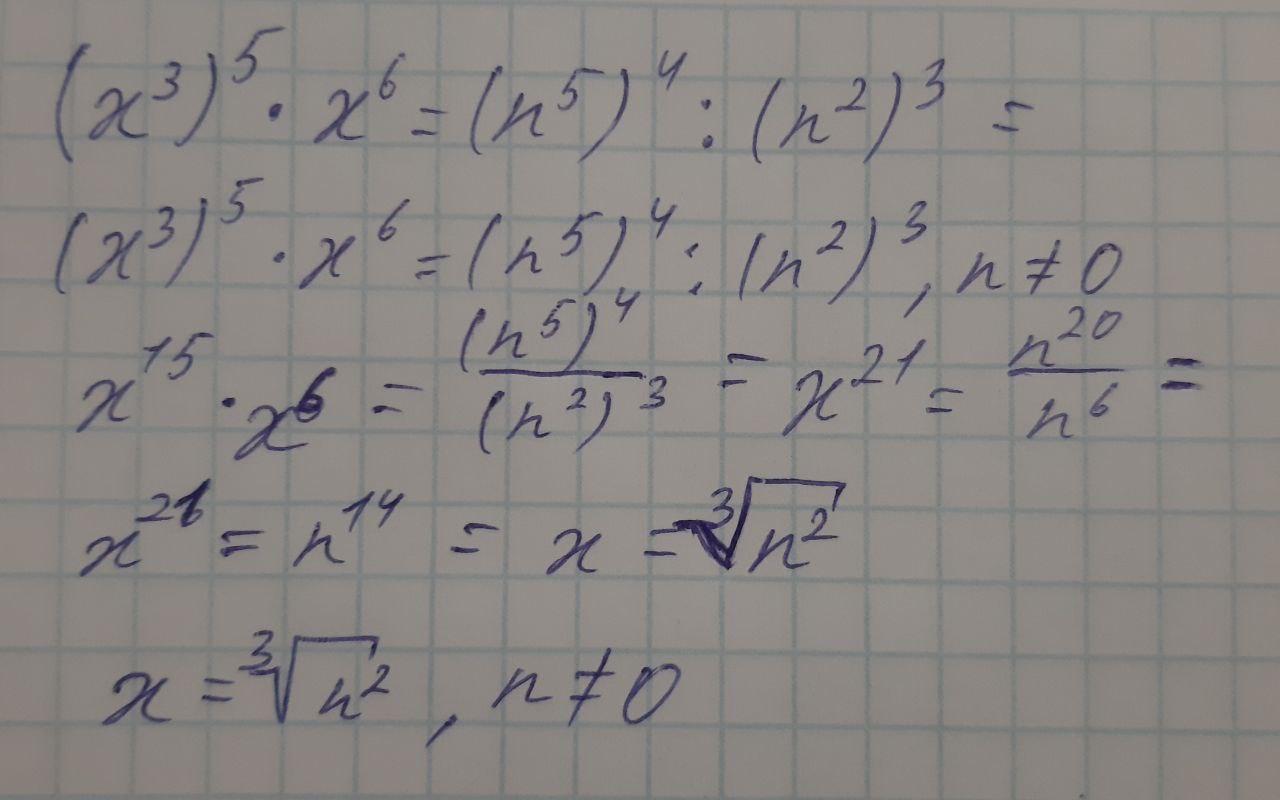 (x³)⁵ · x⁶ = (n⁵)⁴ : (n²)³ =
(x³)⁵ · x⁶ = (n⁵)⁴ : (n²)³, n ≠ 0
x¹⁵ · x⁶ = (n⁵)⁴/(n²)³ = x²¹ = n²⁰/n⁶ =
x²¹ = n¹⁴ = x = ³√n²
x = ³√n², n ≠ 0